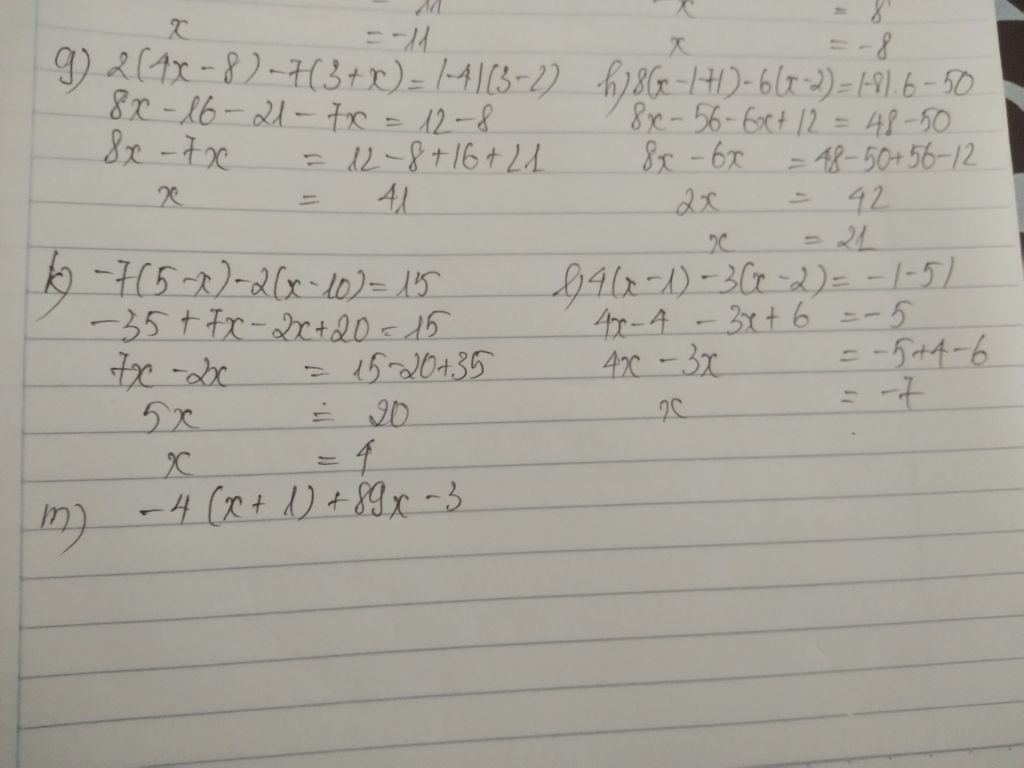 11
x = 8
x = -11
x = -8
g) 2(4x-8)-7(3+x)=|-4|(3-2)
8x-16-21-7x=12-8
8x-7x = 12-8+16+21
x = 41
h) 8(x-|-7|)-6(x-2)=|-8|.6-50
8x-56-6x+12=48-50
8x-6x =48-50+56-12
2x = 42
x = 21
k) -7(5-x)-2(x-10)=15
-35+7x-2x+20=15
7x-2x = 15-20+35
5x = 20
x = 4
l) 4(x-1)-3(x-2)= -|-5|
4x-4 -3x+6 =-5
4x-3x = -5+4-6
x = -7
m) -4(x+1)+89x-3